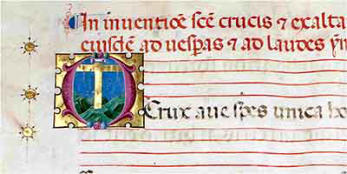 In inventiõe scẽ crucis ⁊ exalta
eiusdẽ ad uesp̃as ⁊ ad laudes ẏm
O Crux aue spes unica ho